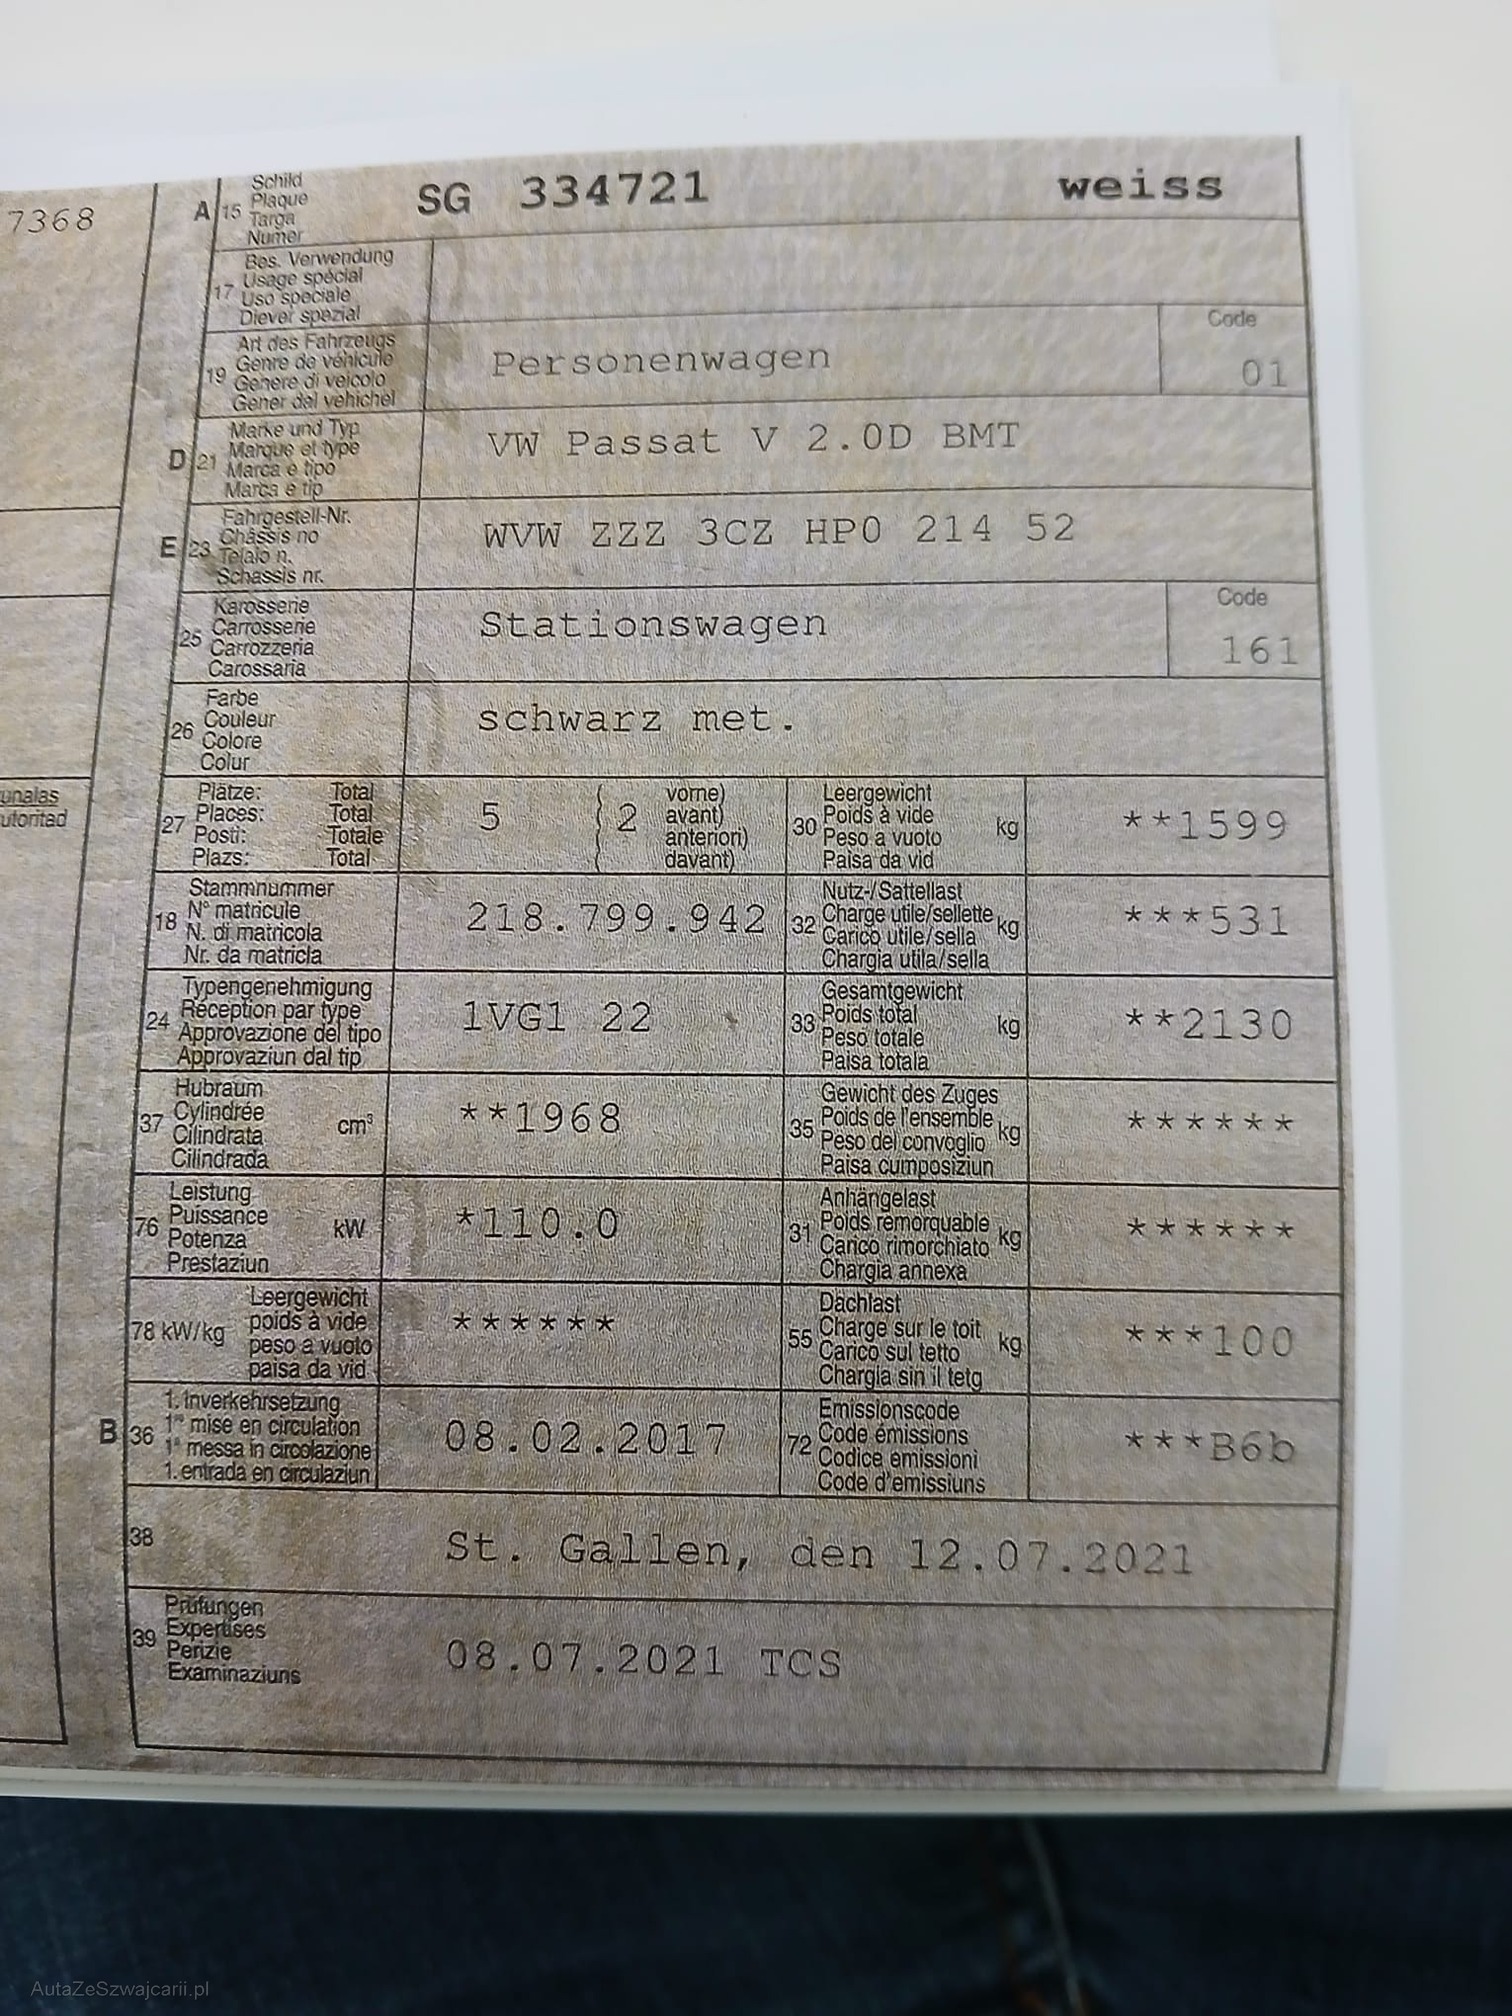 7368
unalas
utoritad
A 15 Schild
Plaque
Targa
Numer
SG 334721 weiss
17 Bes. Verwendung
Usage spécial
Uso speciale
Diever spezial
19 Art des Fahrzeugs
Genre de véhicule
Genere di veicolo
Gener dal vehichel
Personenwagen
Code
01
D 21 Marke und Typ
Marque et type
Marca e tipo
Marca e tip
VW Passat V 2.0D BMT
E 23 Fahrgestell-Nr.
Châssis no
Telaio n.
Schassis nr.
WVW ZZZ 3CZ HP0 214 52
25 Karosserie
Carrosserie
Carrozzeria
Carossaria
Stationswagen
Code
161
26 Farbe
Couleur
Colore
Colur
schwarz met.
27 Plätze: Total
Places: Total
Posti: Totale
Plazs: Total
5 ( 2 vorne)
avant)
anteriori)
davant)
30 Leergewicht
Poids à vide
Peso a vuoto
Paisa da vid
kg
**1599
18 Stammnummer
N° matricule
N. di matricola
Nr. da matricla
218.799.942
32 Nutz-/Sattellast
Charge utile/sellette
Carico utile/sella
Chargia utila/sella
kg
***531
24 Typengenehmigung
Réception par type
Approvazione del tipo
Approvaziun dal tip
1VG1 22
33 Gesamtgewicht
Poids total
Peso totale
Paisa totala
kg
**2130
37 Hubraum
Cylindrée
Cilindrata
Cilindrada
cm³
**1968
35 Gewicht des Zuges
Poids de l'ensemble
Peso del convoglio
Paisa cumposiziun
kg
******
76 Leistung
Puissance
Potenza
Prestaziun
kW
*110.0
31 Anhängelast
Poids remorquable
Carico rimorchiato
Chargia annexa
kg
******
78 kW/kg Leergewicht
poids à vide
peso a vuoto
paisa da vid
******
55 Dachlast
Charge sur le toit
Carico sul tetto
Chargia sin il tetg
kg
***100
B 36 1. Inverkehrsetzung
1re mise en circulation
1a messa in circolazione
1. entrada en circulaziun
08.02.2017
72 Emissionscode
Code émissions
Codice emissioni
Code d'emissiuns
***B6b
38 St. Gallen, den 12.07.2021
39 Prüfungen
Expertises
Perizie
Examinaziuns
08.07.2021 TCS
AutaZeSzwajcarii.pl